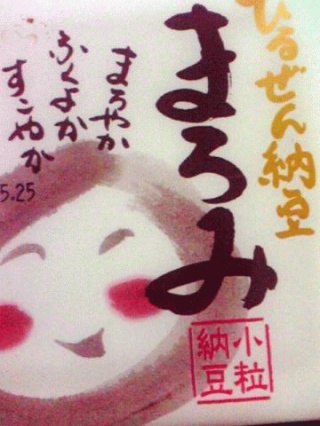 ひるぜん納豆
まろみ
まろやか
ふくよか
すこやか
5.25
小粒
納豆